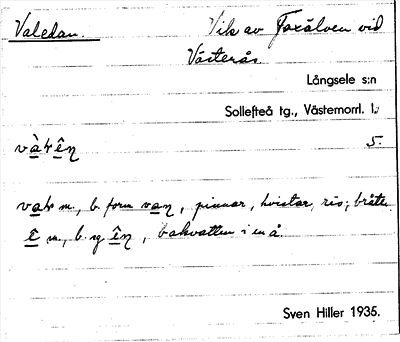 Valedan. Vik av Faxälven vid
Västerås
Långsele s:n
Sollefteå tg., Västernorrl. l.
5.
m., b. form, pinnar, kvistar, ris; bråte
ê m., b. sg ên, bakvatten i en å.
Sven Hiller 1935.